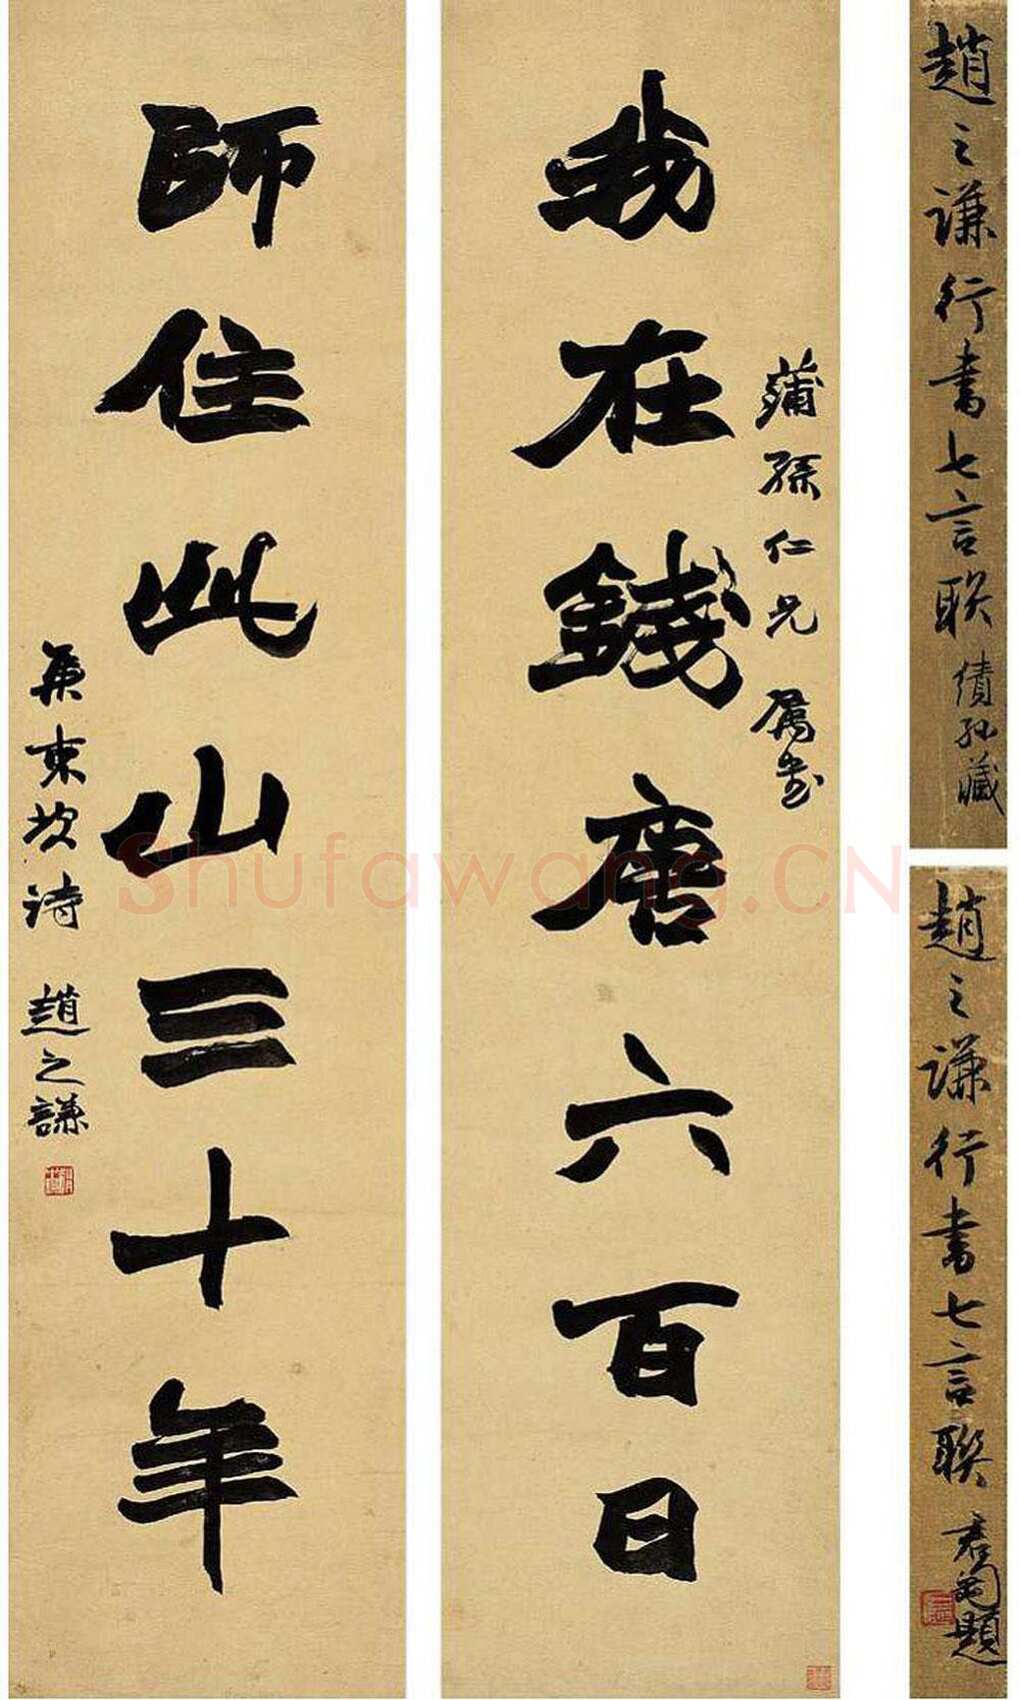 我在錢唐六百日
蒲孫仁兄屬書
師住此山三十年
集東坡詩 趙之謙
趙之謙行書七言聯 績孙藏
趙之谦行書七言聯 題
Shufawang.CN